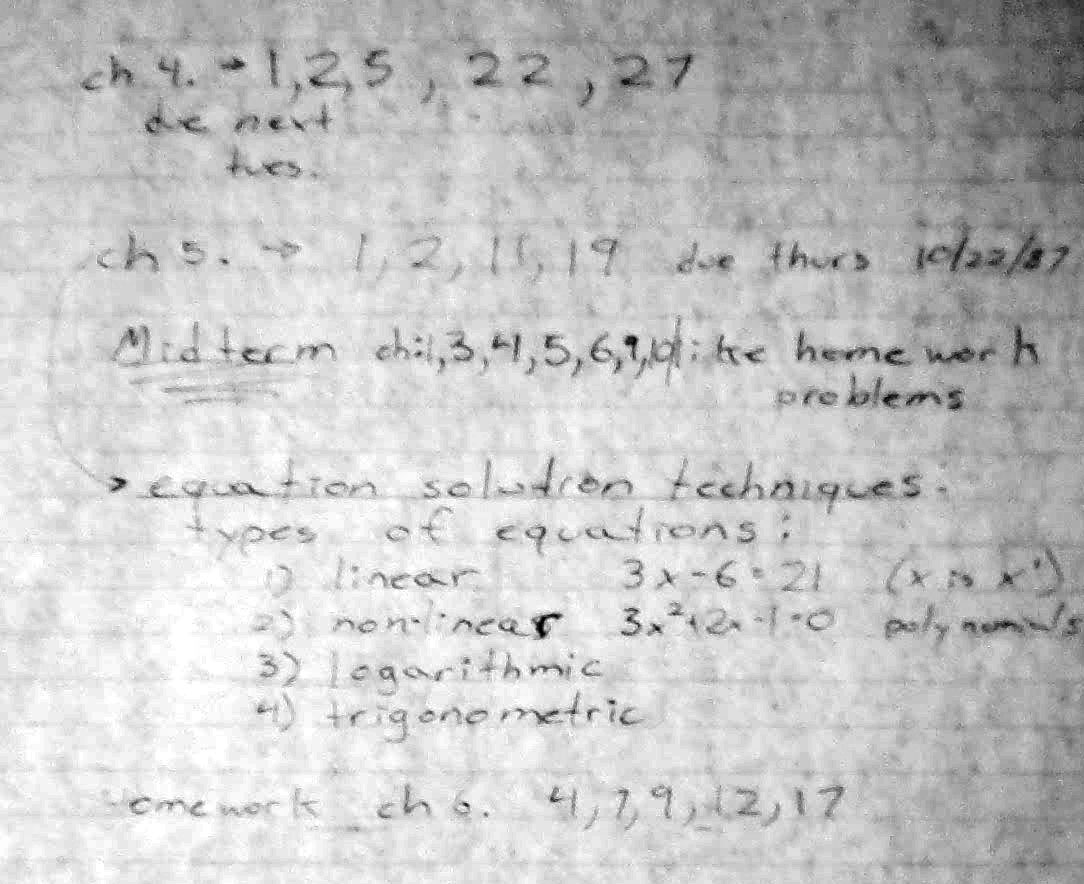 ch 4. → 1, 2, 5, 22, 27
due next
tues.
ch 5. → 1, 2, 11, 19 due thurs 10/22/87
Midterm ch: 1, 3, 4, 5, 6, 9, 10 like home work
problems
> equation solution techniques.
types of equations:
1) linear 3x-6=21 (x is x')
2) non-linear 3x²+2x-1=0 polynomials
3) logarithmic
4) trigonometric
Homework ch 6. 4, 7, 9, 12, 17